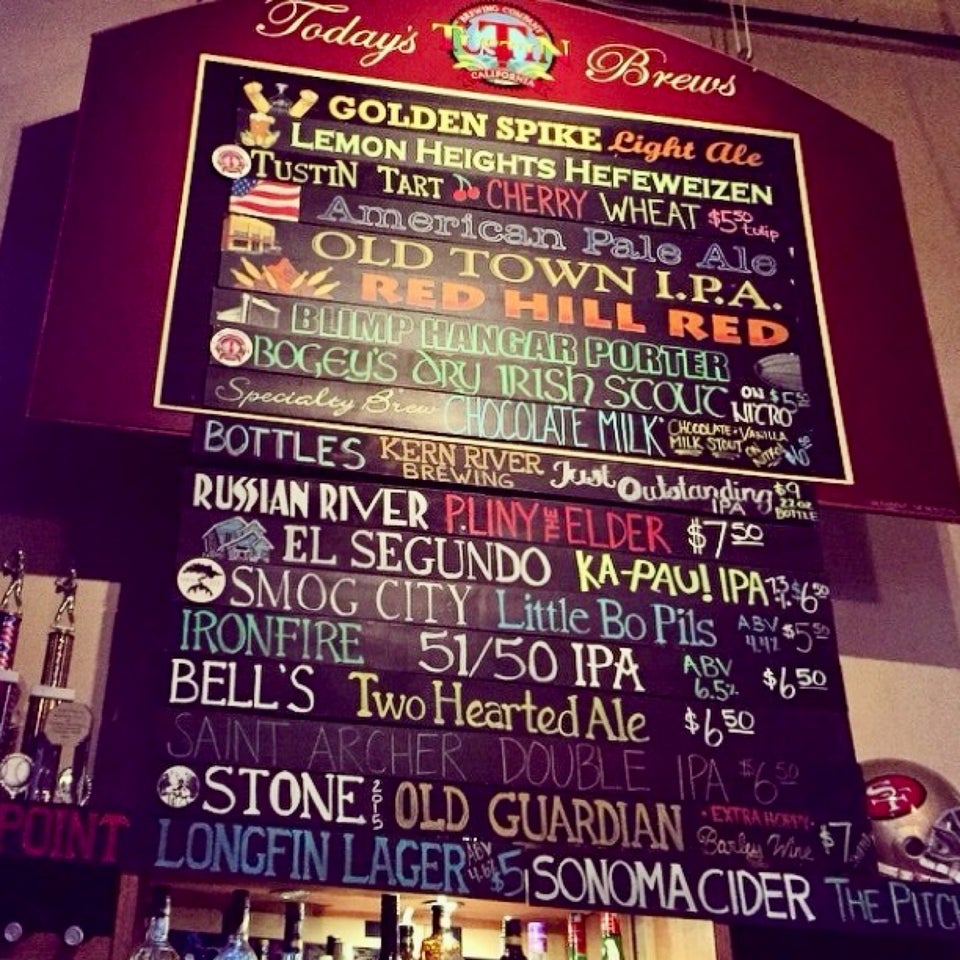 Today's TUSTIN Brews
BREWING COMPANY
CALIFORNIA
GOLDEN SPIKE Light Ale
LEMON HEIGHTS HEFEWEIZEN
TUSTIN TART CHERRY WHEAT $5.50 tulip
American Pale Ale
OLD TOWN I.P.A.
RED HILL RED
BLIMP HANGAR PORTER
BOGEY'S DRY IRISH STOUT ON NITRO
Specialty Brew CHOCOLATE MILK CHOCOLATE + VANILLA MILK STOUT
BOTTLES KERN RIVER BREWING Just Outstanding IPA $9 22oz BOTTLE
RUSSIAN RIVER PLINY THE ELDER $7.50
EL SEGUNDO KA-PAU! IPA $6.50
SMOG CITY Little Bo Pils ABV 4.4% $5.50
IRONFIRE 51/50 IPA ABV 6.5% $6.50
BELL'S Two Hearted Ale $6.50
SAINT ARCHER DOUBLE IPA $6.50
STONE 2015 OLD GUARDIAN • EXTRA HOPPY • Barley Wine $7
LONGFIN LAGER ABV $5 SONOMA CIDER THE PITCH
POINT